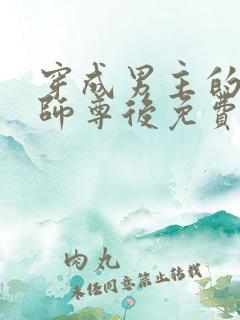 穿成男主的
師尊後免費
肉丸
未經同意禁止轉載